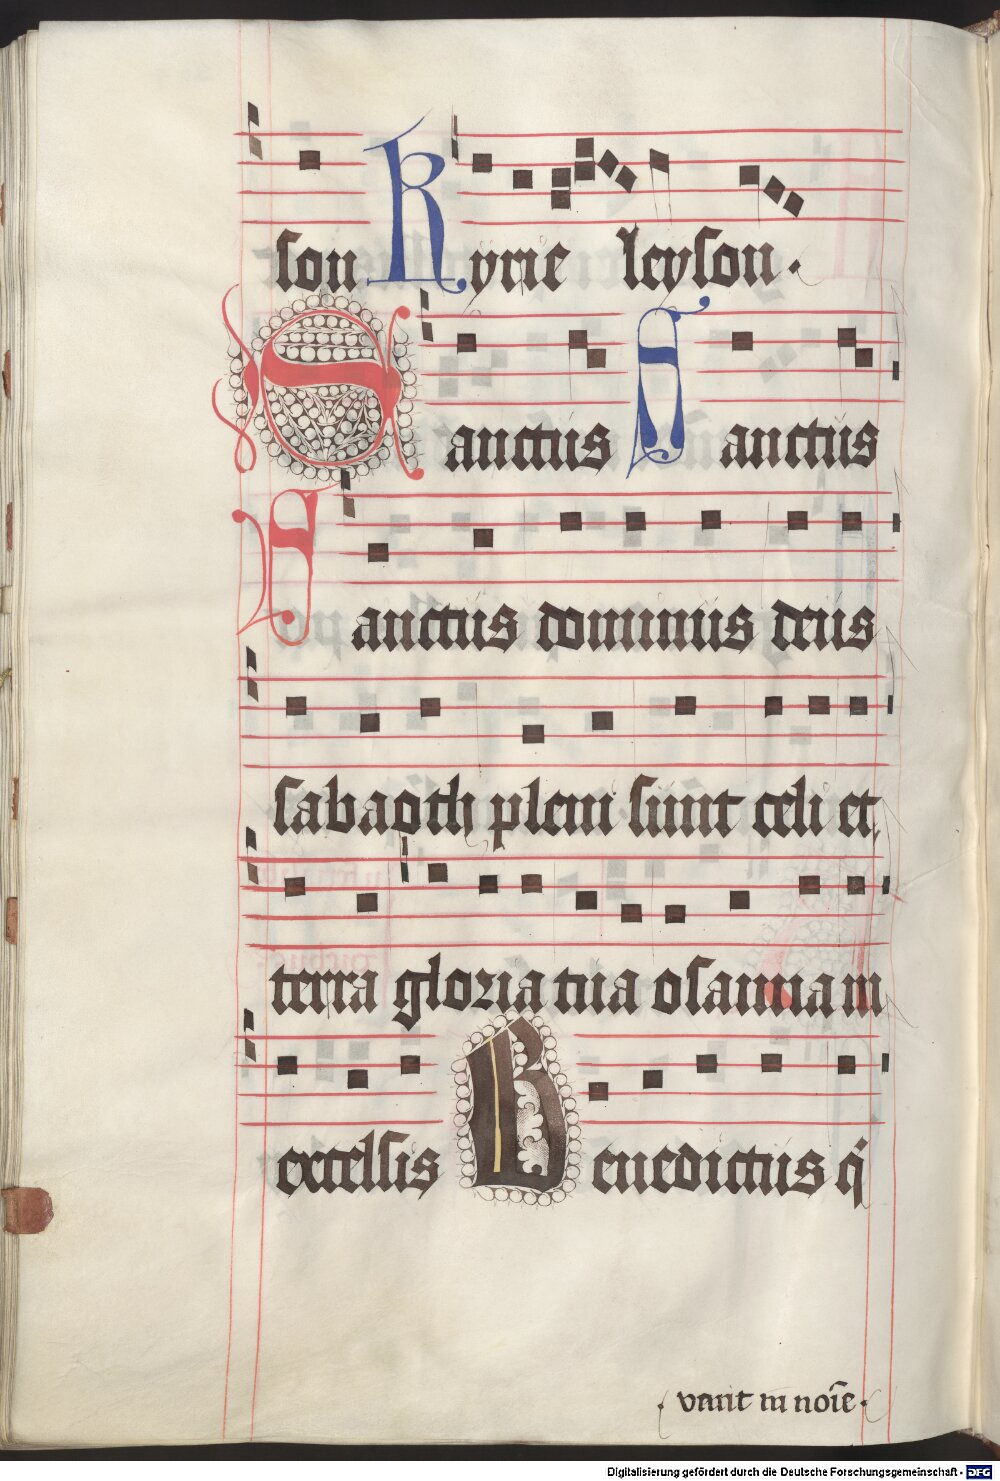 son Kyrie leyson.
Sanctus Sanctus
Sanctus dominus deus
sabaoth pleni sunt celi et
terra gloria tua osanna in
excelsis Benedictus q̇
. venit in noīe .
Digitalisierung gefördert durch die Deutsche Forschungsgemeinschaft - DFG